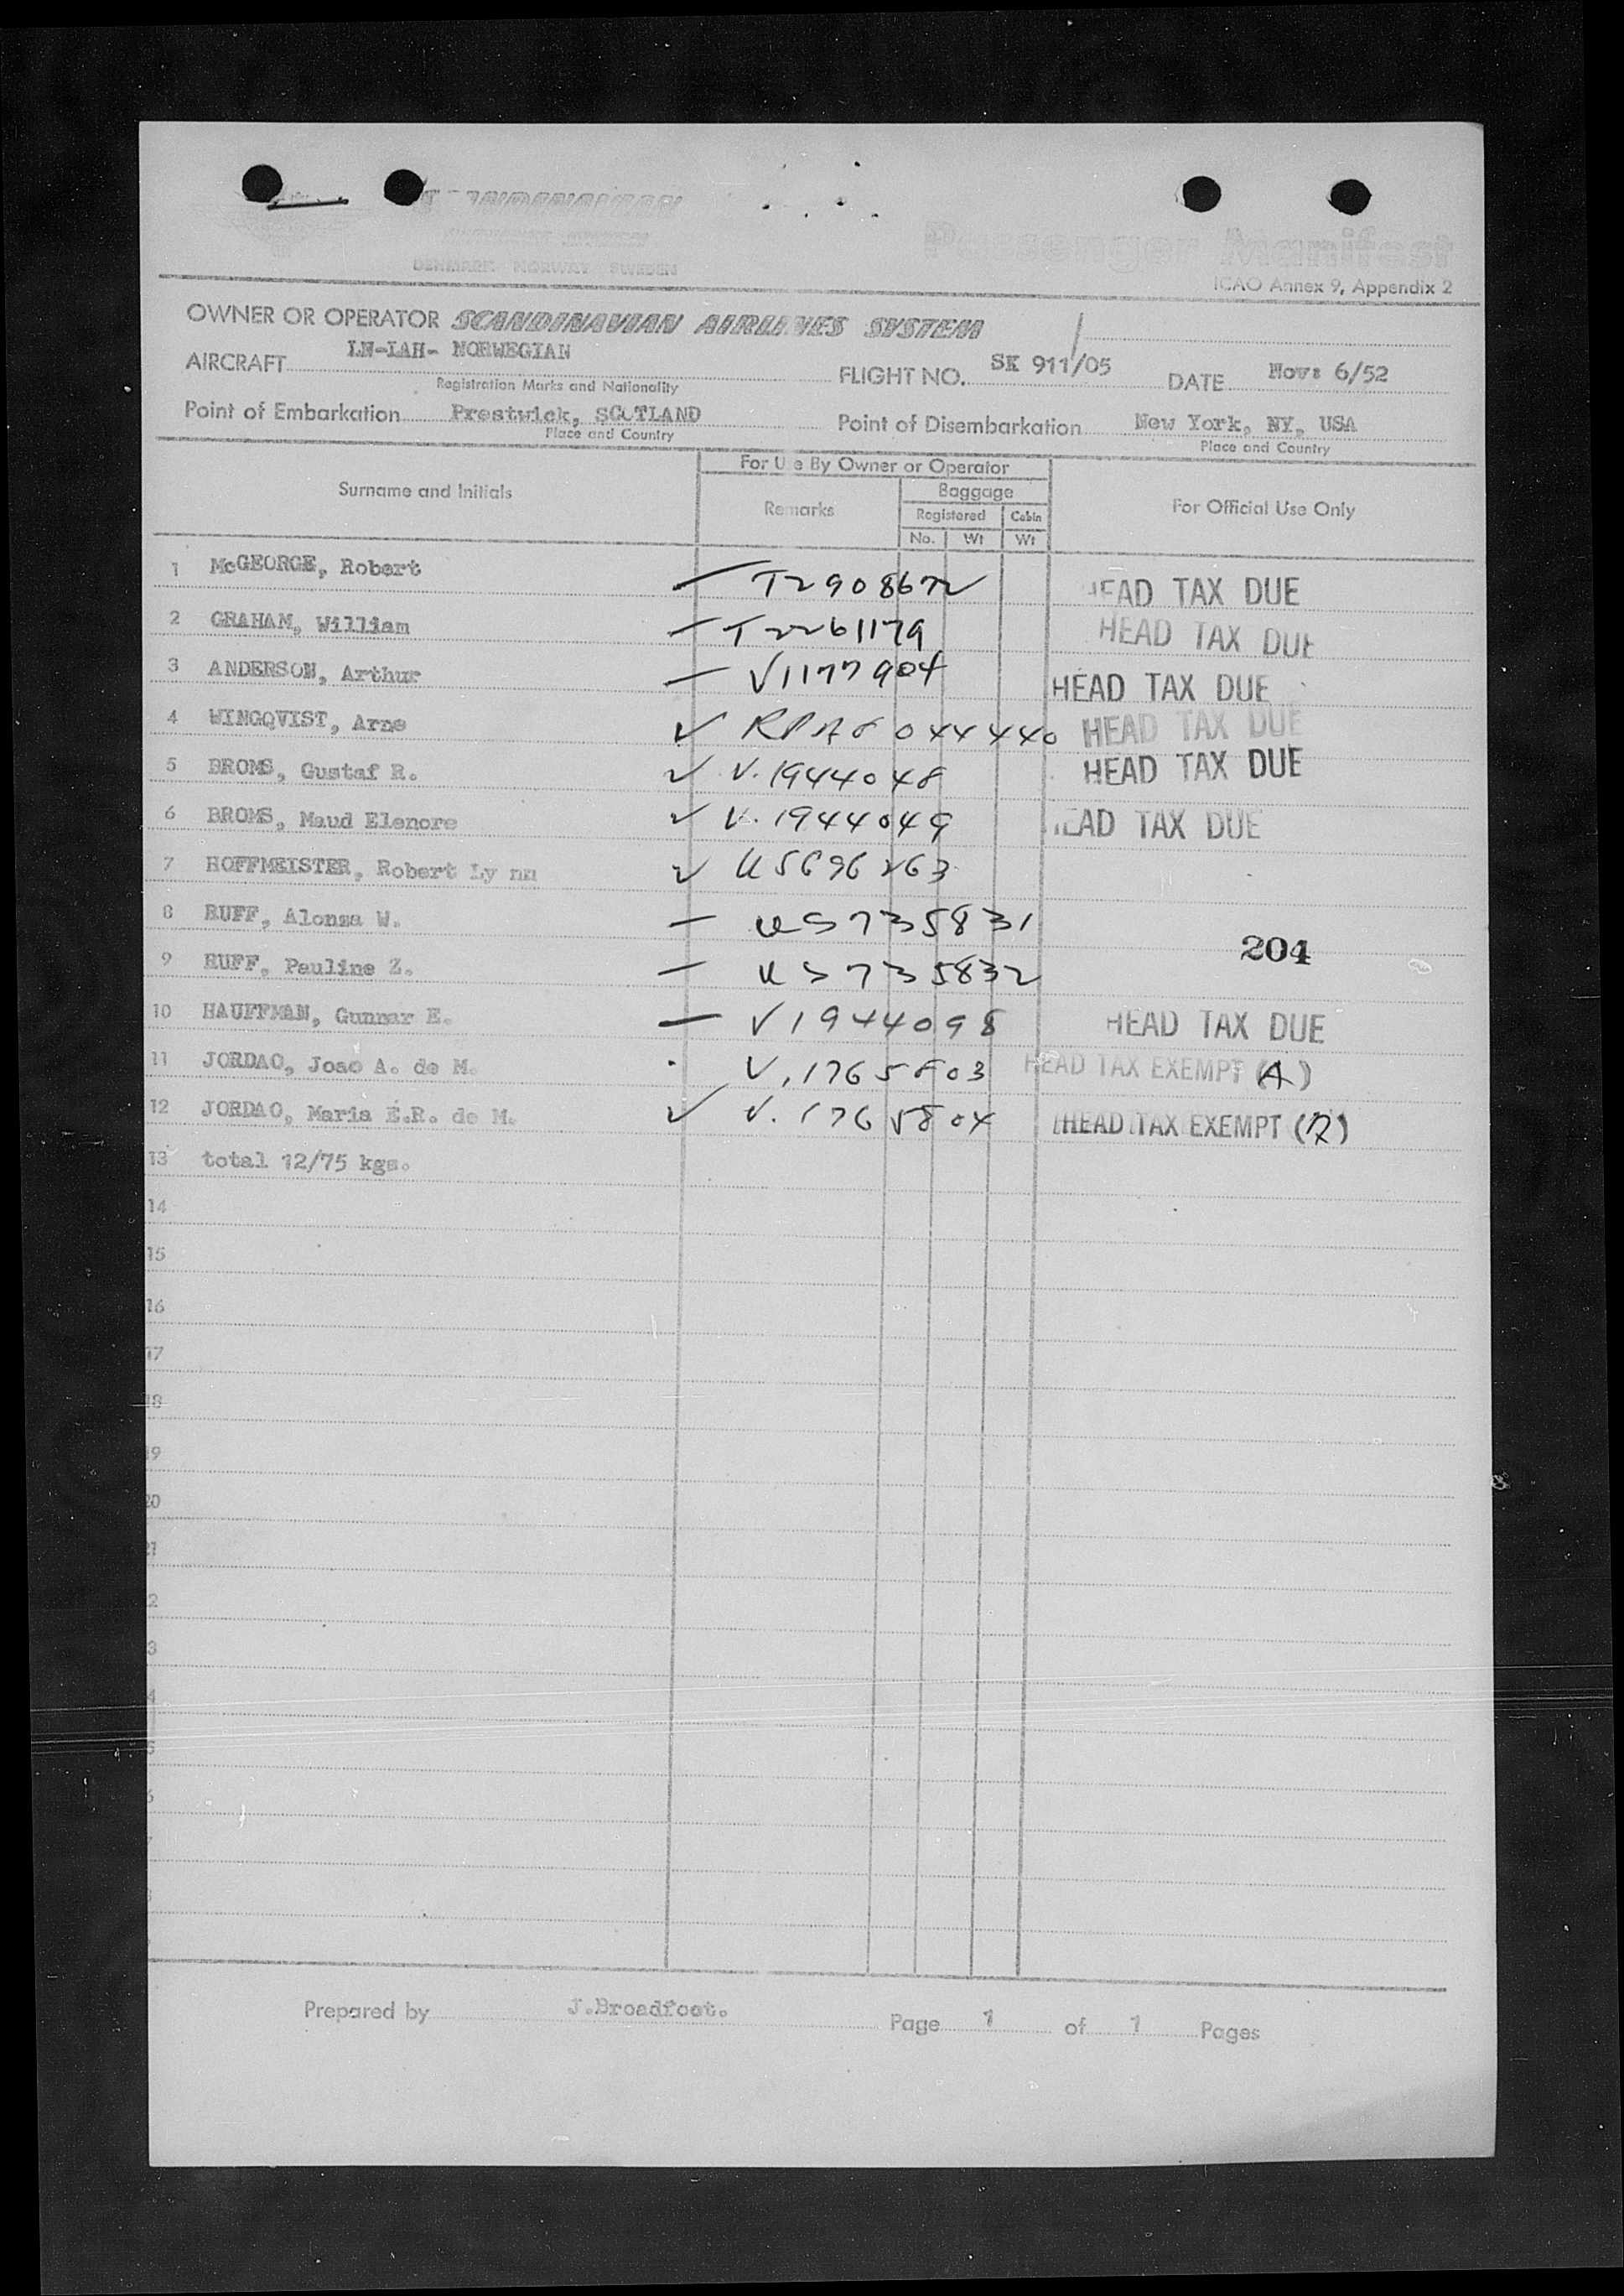 SCANDINAVIAN
DENMARK NORWAY SWEDEN
Passenger Manifest
ICAO Annex 9, Appendix 2
OWNER OR OPERATOR SCANDINAVIAN AIRLINES SYSTEM
AIRCRAFT LN-LAH- NORWEGIAN FLIGHT NO. SK 911/05 DATE Nov: 6/52
Registration Marks and Nationality
Point of Embarkation Prestwick, SCOTLAND Point of Disembarkation New York, NY, USA
Place and Country Place and Country
For Use By Owner or Operator
Surname and Initials Remarks Baggage For Official Use Only
Registered Cabin
No. Wt Wt
1 McGEORGE, Robert — T2908672 HEAD TAX DUE
2 GRAHAM, William — T2261179 HEAD TAX DUE
3 ANDERSON, Arthur — V1177904 HEAD TAX DUE
4 WINGQVIST, Arne ✓ 044440 HEAD TAX DUE
5 BROMS, Gustaf R. ✓ V.1944048 HEAD TAX DUE
6 BROMS, Maud Elenore ✓ V.1944049 HEAD TAX DUE
7 HOFFMEISTER, Robert Ly nn ✓ US696263
8 RUFF, Alonza W. — US735831
204
9 RUFF, Pauline Z. — US735832
10 HAUFFMAN, Gunnar E. — V1944098 HEAD TAX DUE
11 JORDAO, Joao A. de M. V.1765803 HEAD TAX EXEMPT (A)
12 JORDAO, Maria E.R. de M. ✓ V.1765804 HEAD TAX EXEMPT (A)
13 total 12/75 kgs.
14
15
16
17
18
19
20
21
2
3
4
5
Prepared by J.Broadfoot. Page 1 of 1 Pages